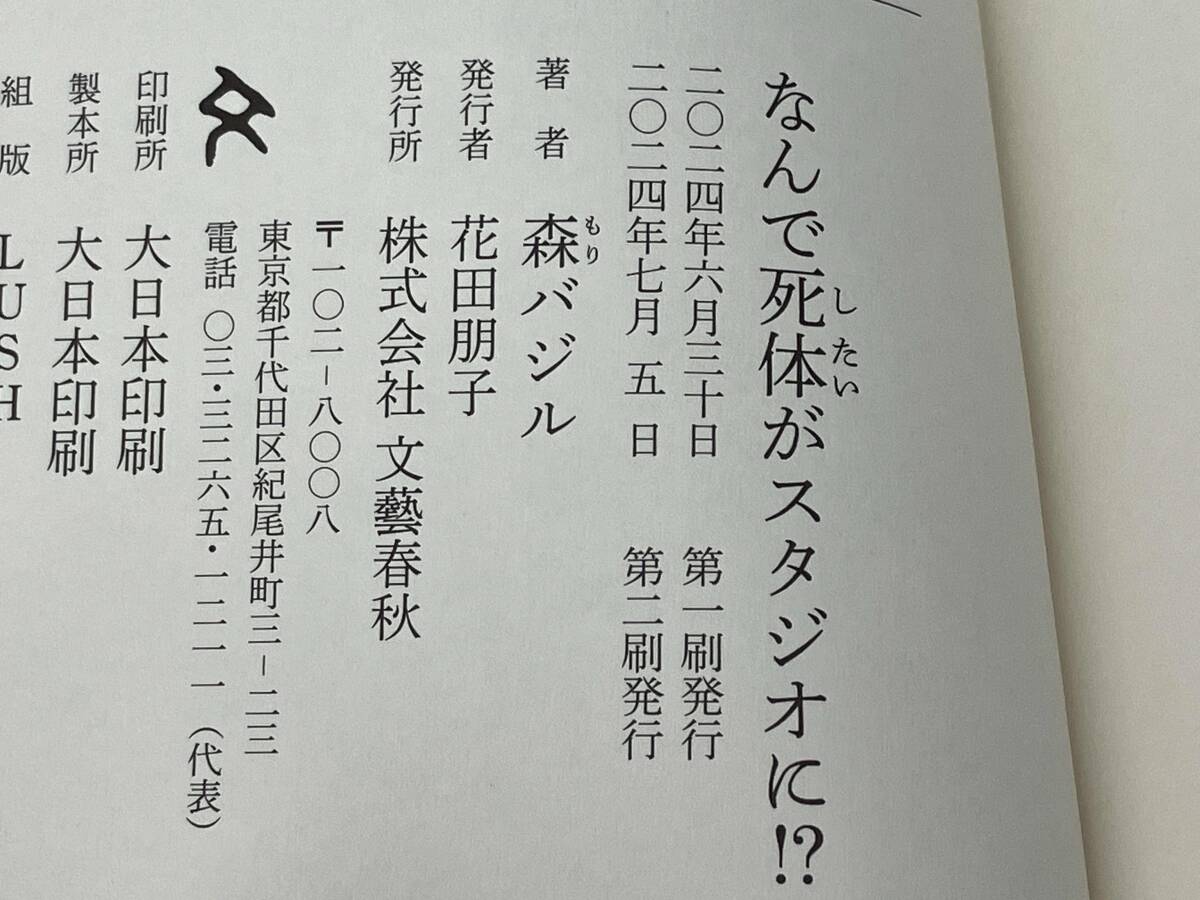 なんで死体がスタジオに!?
したい
二〇二四年六月三十日 第一刷発行
二〇二四年七月 五 日 第二刷発行
著 者 森バジル
もり
発行者 花田朋子
発行所 株式会社 文藝春秋
〒一〇二-八〇〇八
東京都千代田区紀尾井町三-二三
電話 〇三・三二六五・一二一一(代表)
印刷所 大日本印刷
製本所 大日本印刷
組 版 LUSH